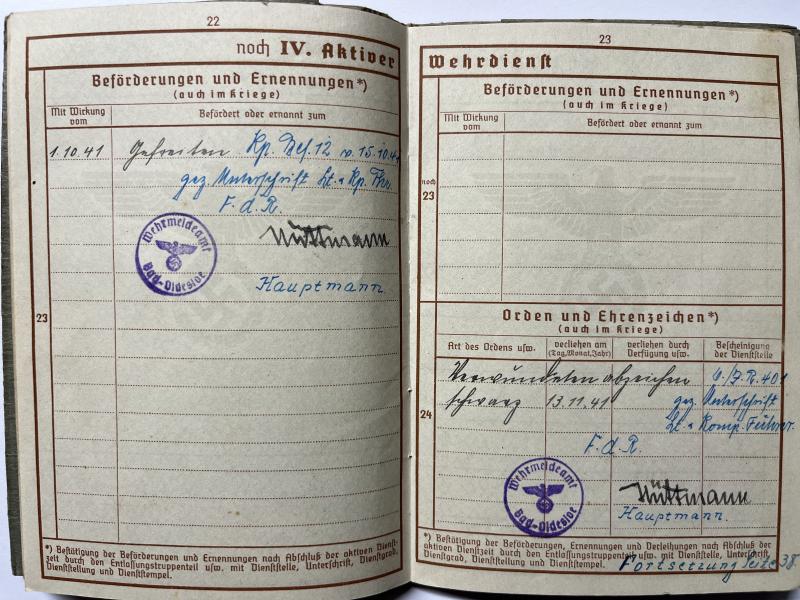 22
noch IV. Aktiver
Beförderungen und Ernennungen*)
(auch im Kriege)
Mit Wirkung vom
Befördert oder ernannt zum
1.10.41 Gefreiten Kp. Bef. 12 v. 15.10.41
gez. Unterschrift Lt. u. Kp. Fhr.
F. d. R.
Wehrmeldeamt
Bad-Oldesloe
Nüttmann
Hauptmann
23
*) Bestätigung der Beförderungen und Ernennungen nach Abschluß der aktiven Dienst-
zeit durch den Entlassungstruppenteil usw. mit Dienststelle, Unterschrift, Dienstgrad,
Dienststellung und Dienststempel.
23
Wehrdienst
Beförderungen und Ernennungen*)
(auch im Kriege)
Mit Wirkung vom
Befördert oder ernannt zum
noch
23
Orden und Ehrenzeichen*)
(auch im Kriege)
Art des Ordens usw.
verliehen am (Tag, Monat, Jahr)
verliehen durch Verfügung usw.
Bescheinigung der Dienststelle
Verwundetenabzeichen 6./J.R. 401
schwarz 13.11.41 gez. Unterschrift
Lt. u. Komp. Führer.
24
F. d. R.
Wehrmeldeamt
Bad-Oldesloe
Nüttmann
Hauptmann.
*) Bestätigung der Beförderungen, Ernennungen und Verleihungen nach Abschluß der
aktiven Dienstzeit durch den Entlassungstruppenteil usw. mit Dienststelle, Unterschrift,
Dienstgrad, Dienststellung und Dienststempel.
Fortsetzung Seite 38.